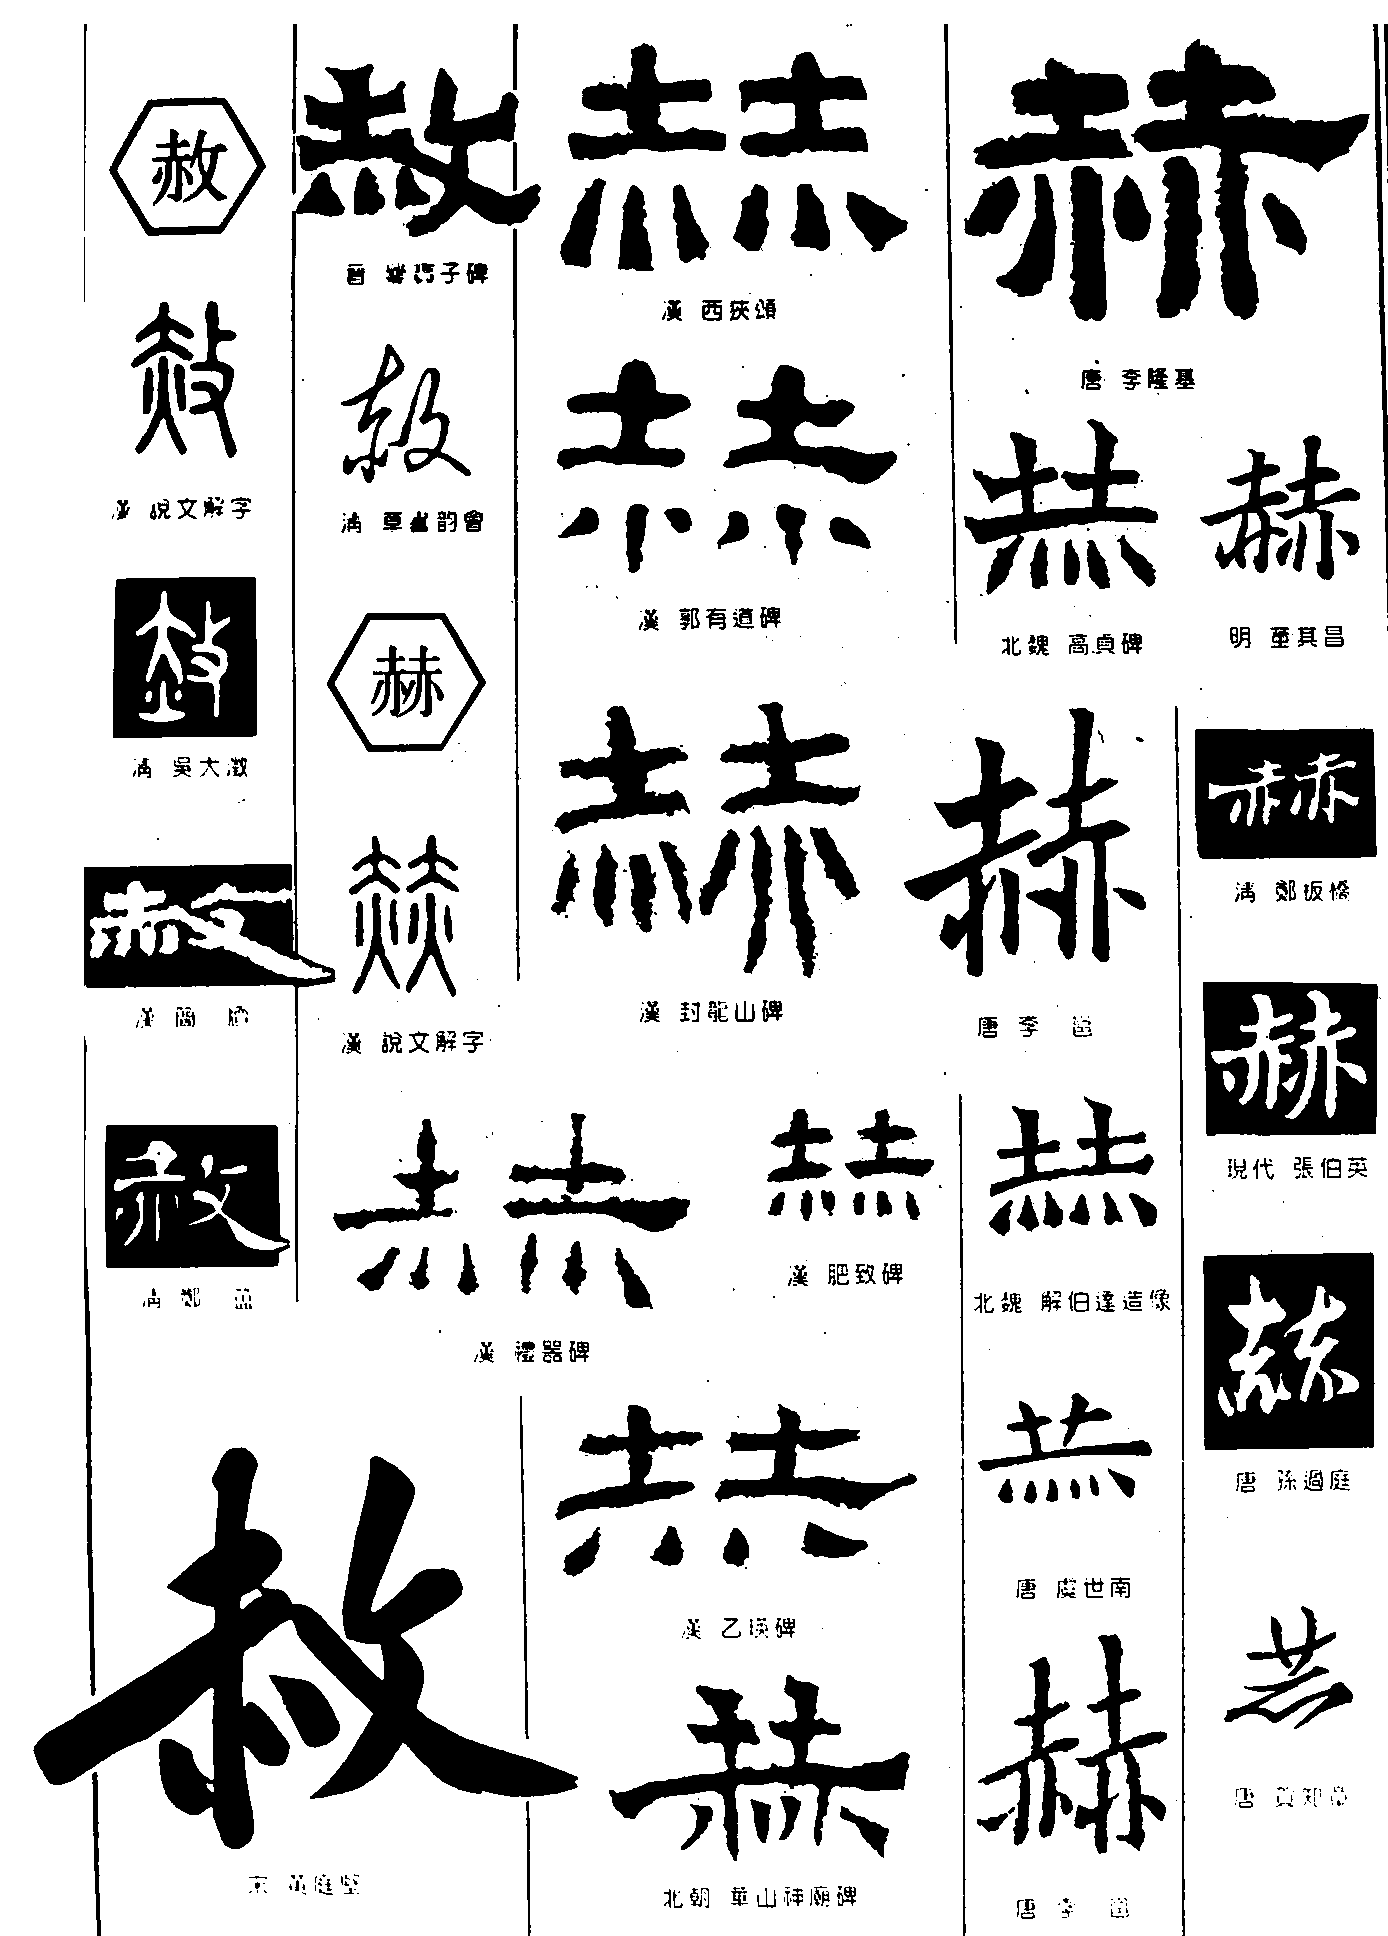 赦
赦
漢 說文解字
赦
清 吳大澂
赦
漢 簡 牘
赦
清 鄭 簠
赦
宋 黃庭堅
赦
晉
赦
清 草書韵會
赫
赫
漢 說文解字
赫
漢 禮器碑
赫
漢 西狹頌
赫
漢 郭有道碑
赫
漢 封龍山碑
赫
漢 肥致碑
赫
漢 乙瑛碑
赫
北朝 華山神廟碑
赫
唐 李隆基
赫
北魏 高貞碑
赫
明 董其昌
赫
唐 李 邕
赫
北魏 解伯達造像
赫
唐 虞世南
赫
唐 李 邕
赫
清 鄭板橋
赫
現代 張伯英
赫
唐 孫過庭
赫
唐 賀知章